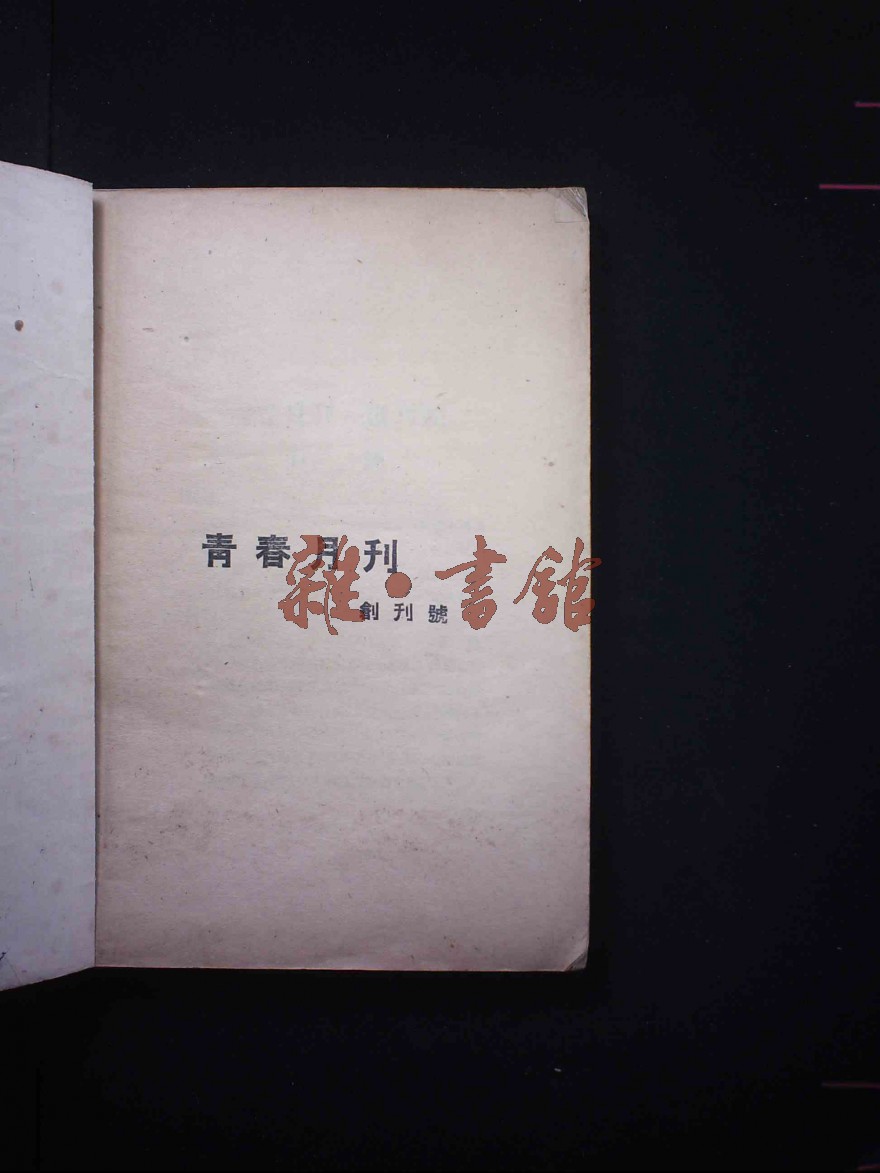 青春月刊
雜·書館
創刊號